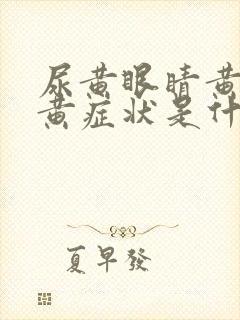 尿黄眼睛黄
黄症状是什
夏早發